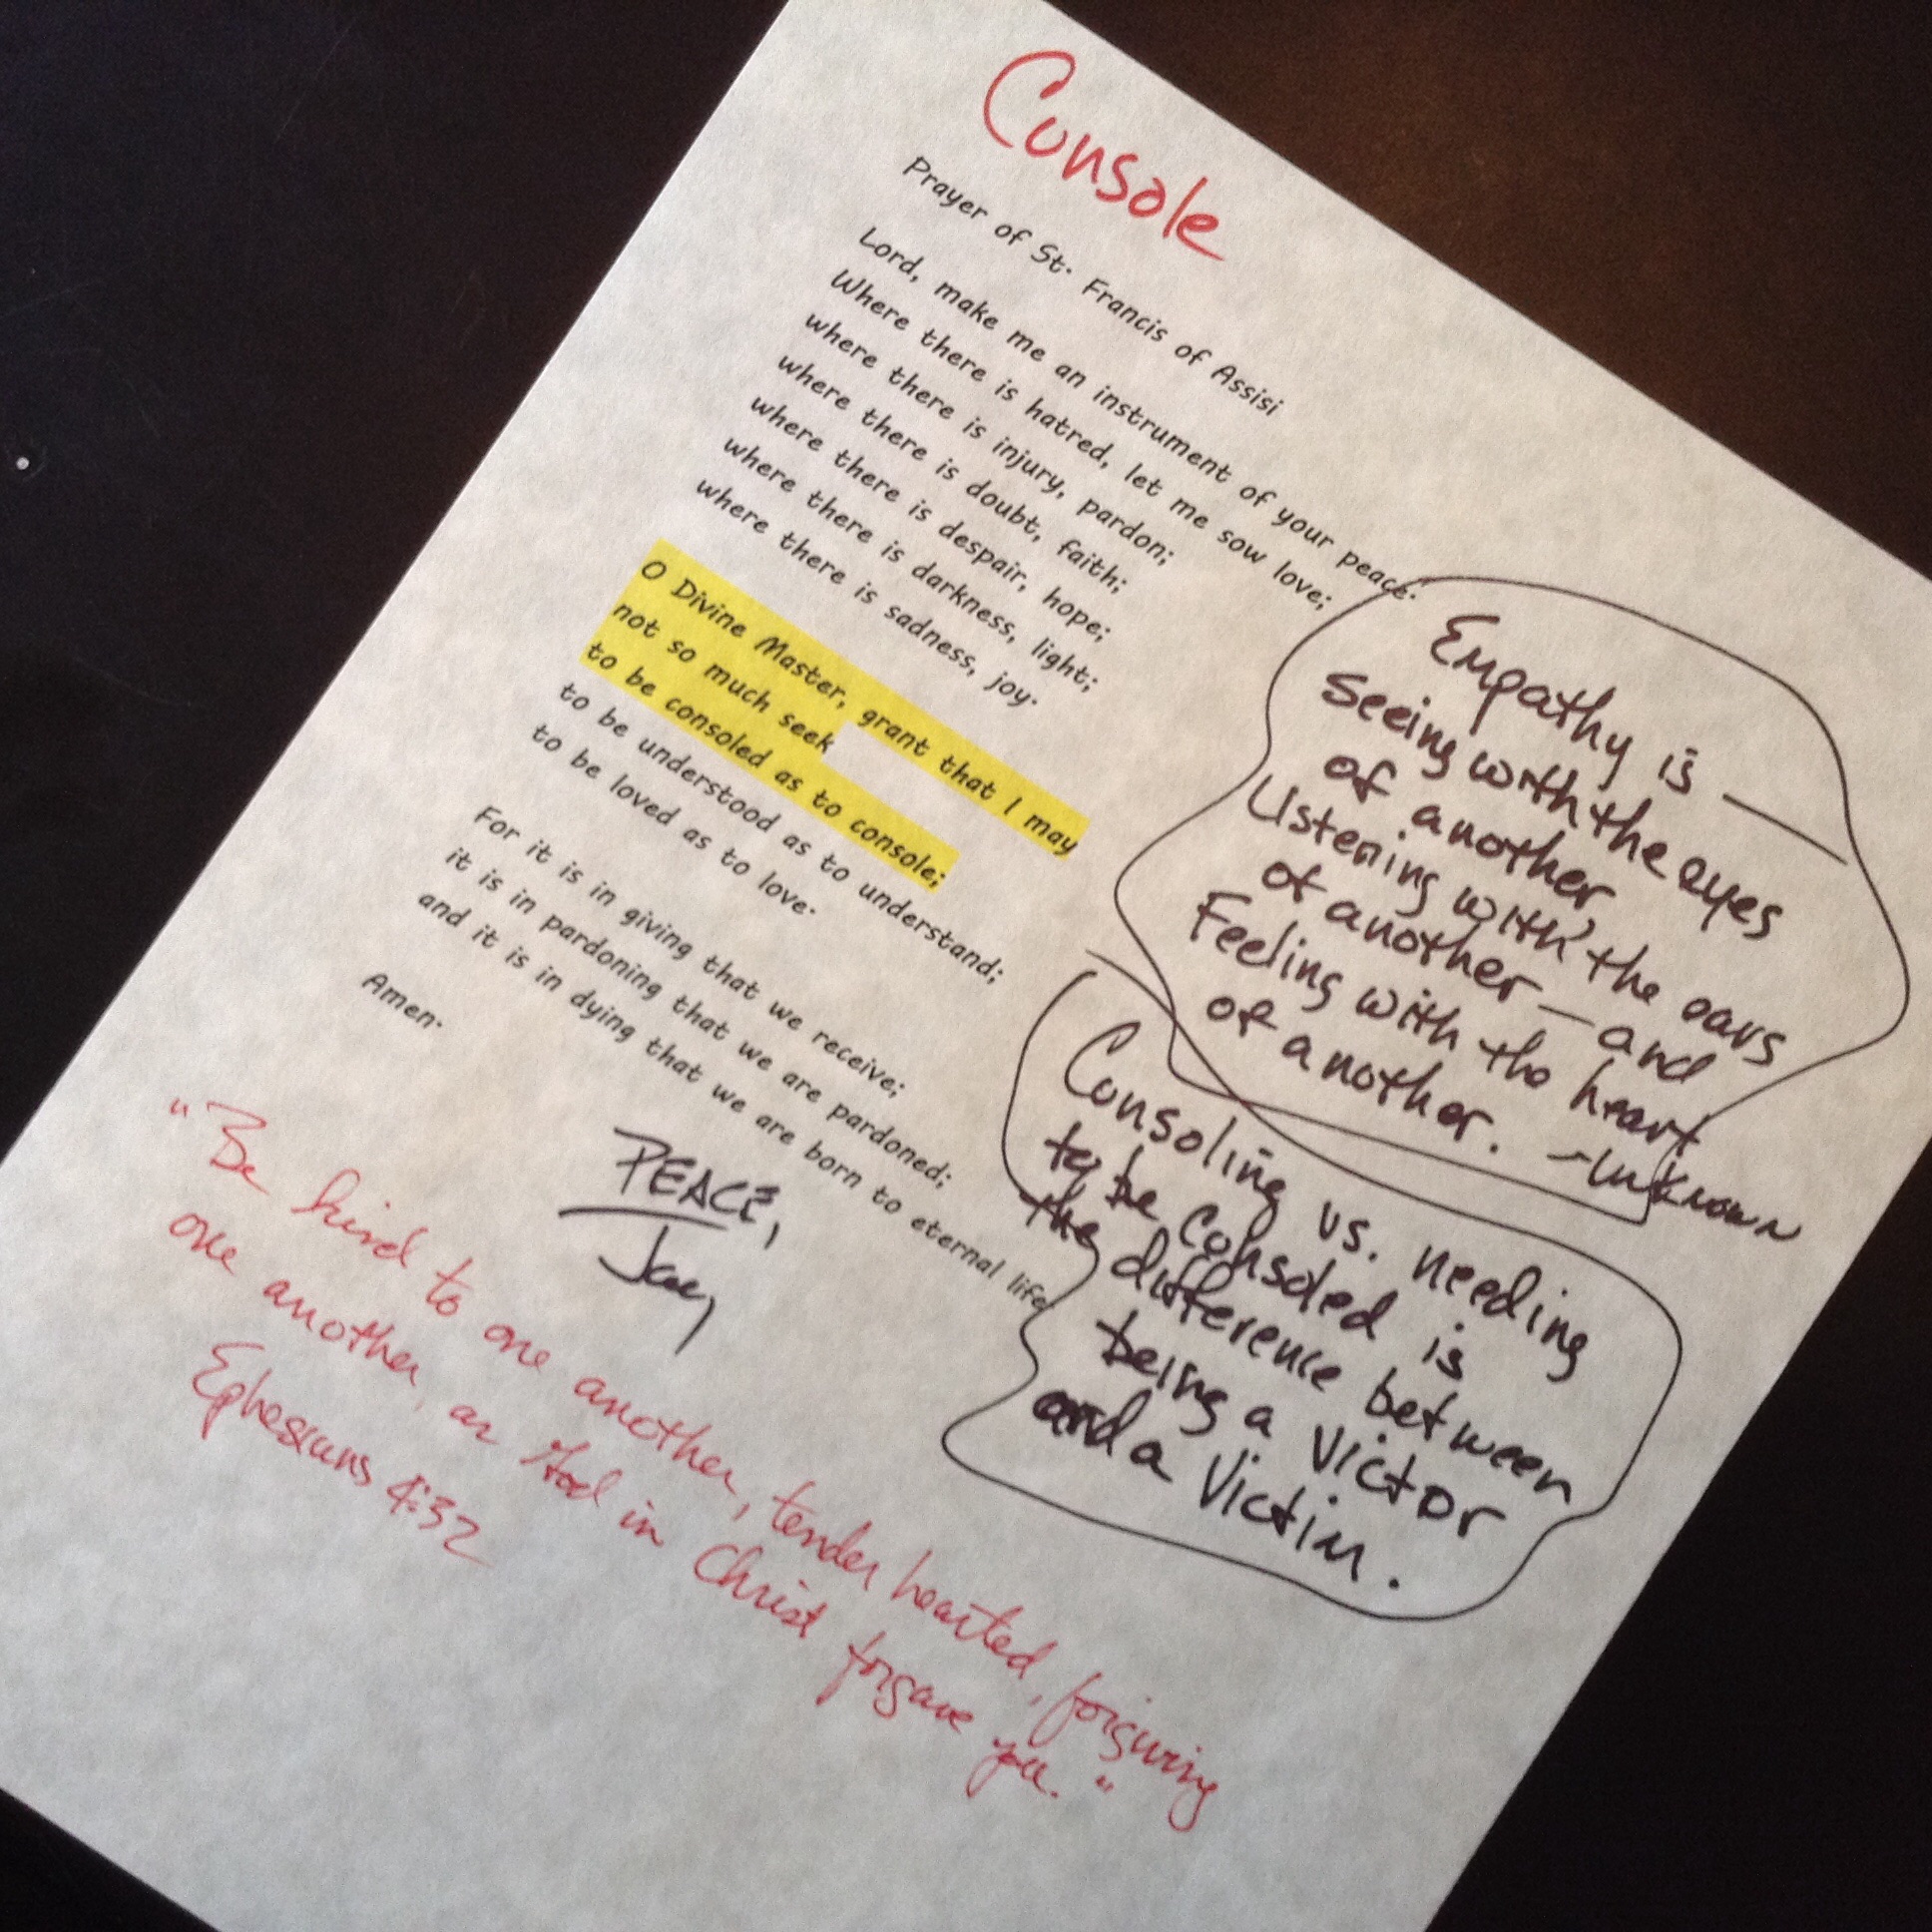 Console
Prayer of St. Francis of Assisi
Lord, make me an instrument of your peace.
Where there is hatred, let me sow love;
where there is injury, pardon;
where there is doubt, faith;
where there is despair, hope;
where there is darkness, light;
where there is sadness, joy.
O Divine Master, grant that I may
not so much seek
to be consoled as to console;
to be understood as to understand;
to be loved as to love.
For it is in giving that we receive;
it is in pardoning that we are pardoned;
and it is in dying that we are born to eternal life
Amen.
Empathy is —
seeing with the eyes
of another,
Listening with the ears
of another — and
Feeling with the heart
of another.
- Unknown
Consoling vs. needing
to be consoled is
the difference between
being a Victor
and a Victim.
PEACE,
"Be kind to one another, tender hearted, forgiving
one another, as God in Christ forgave you."
Ephesians 4:32